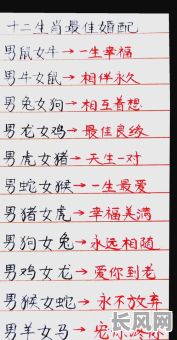 十二生肖最佳婚配
男鼠女牛→一生幸福
男牛女鼠→相伴永久
男兔女狗→相互着想
男龙女鸡→最佳良缘
男虎女猪→天生一对
男蛇女猴→一生最爱
男猪女虎→幸福美满
男狗女兔→永远相随
男鸡女龙→爱你到老
男猴女蛇→永不放弃
男羊女马→宠你疼你
长风网